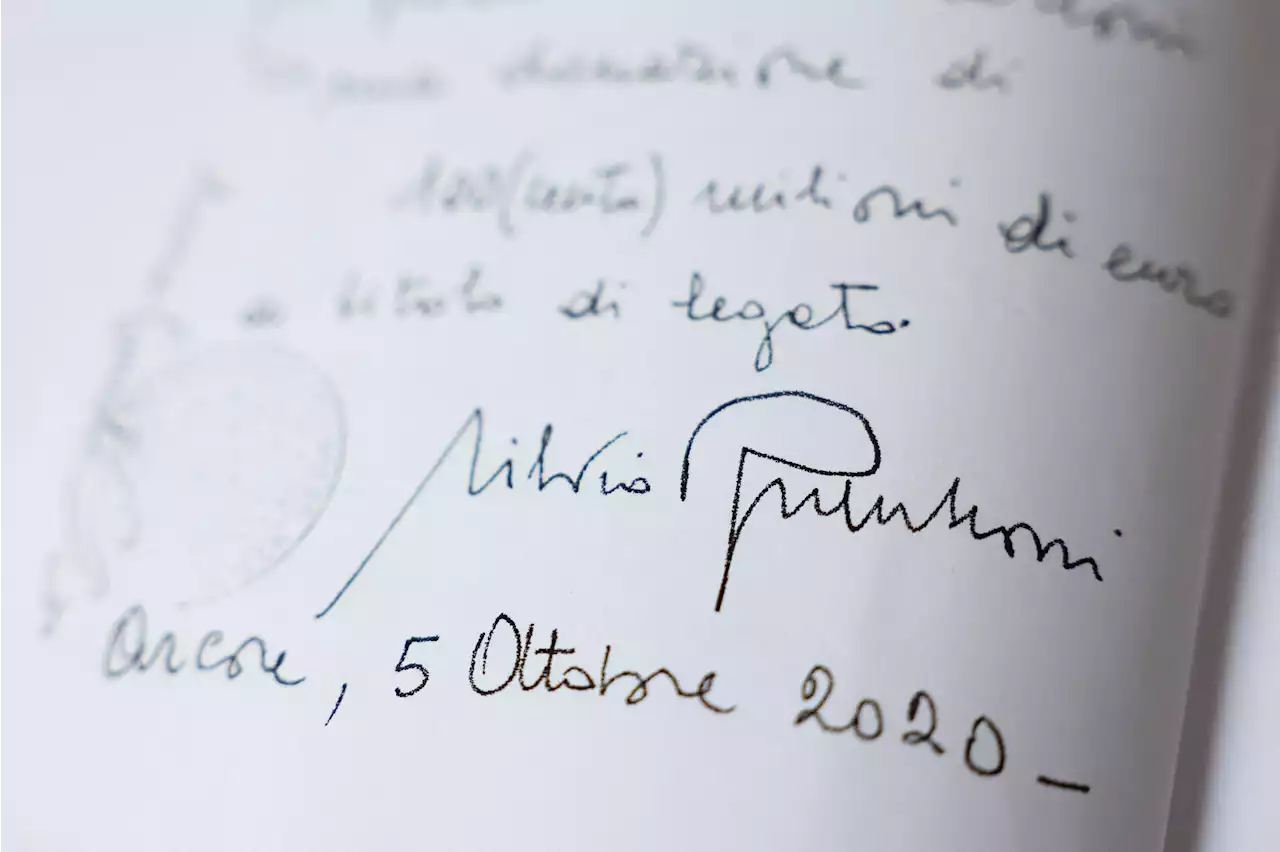 una donazione di
100 (cento) milioni di euro
a titolo di legato.
Silvio Berlusconi
Arcore, 5 Ottobre 2020 –